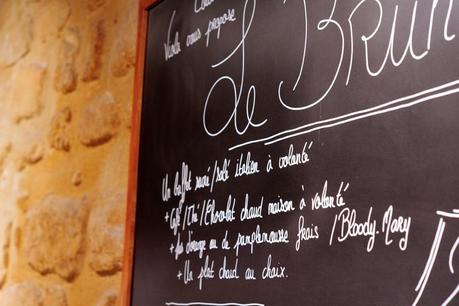 vous propose
Le Brun
Un buffet sucré/salé italien à volonté
+ Café/Thé/Chocolat chaud maison à volonté
+ Jus d'orange ou de pamplemousse frais / Bloody-Mary
+ Un plat chaud au choix.